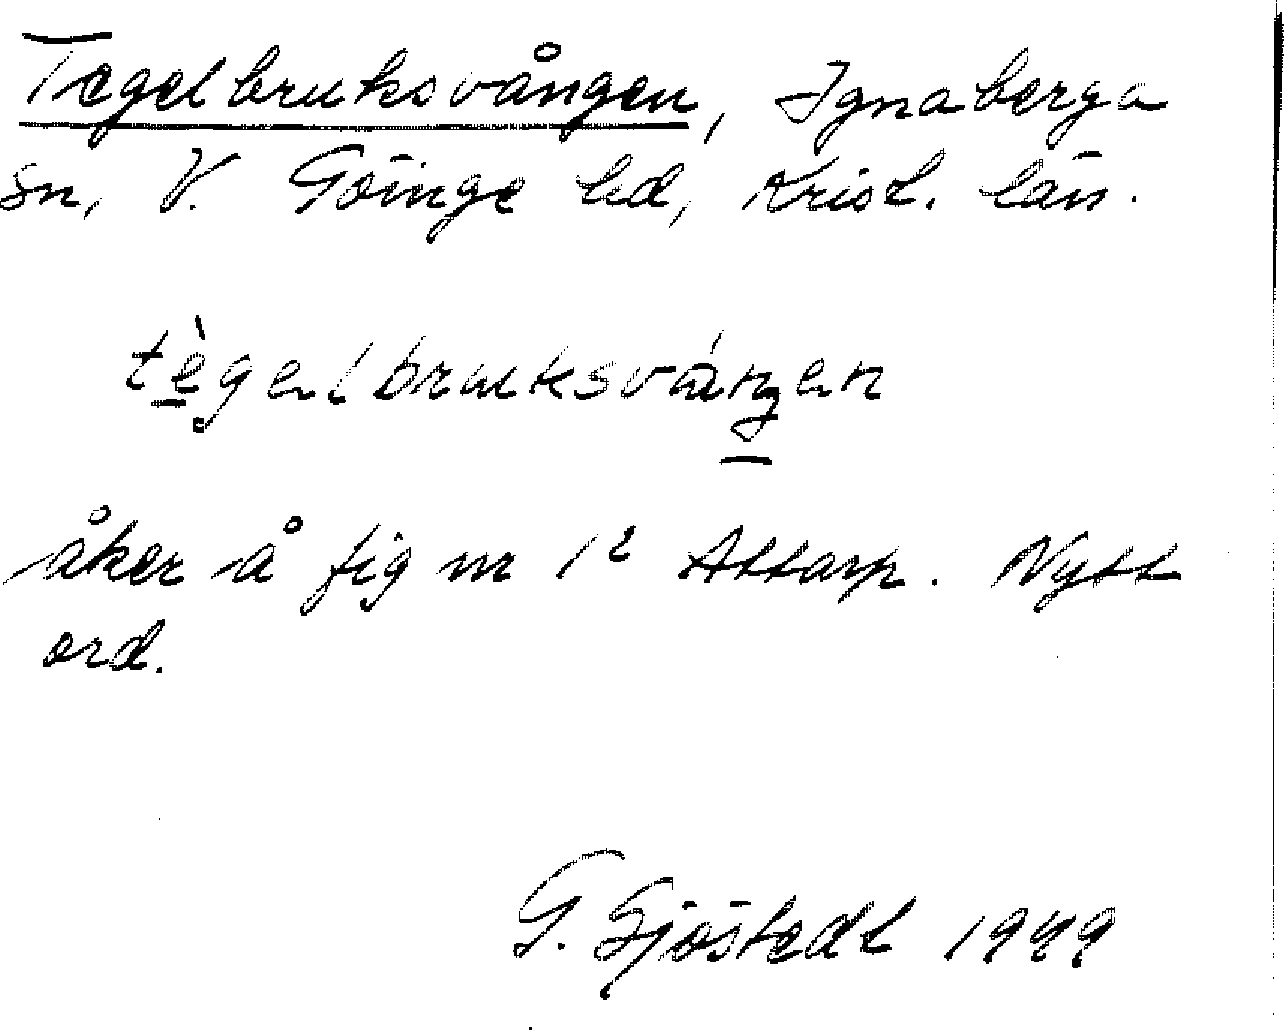 Tegelbruksvången, Ignaberga
sn, V. Göinge hd, Krist. län.
tègəlbruksváŋən
åker å fig nr 1² Attarp. Nytt
ord.
G. Sjöstedt 1949